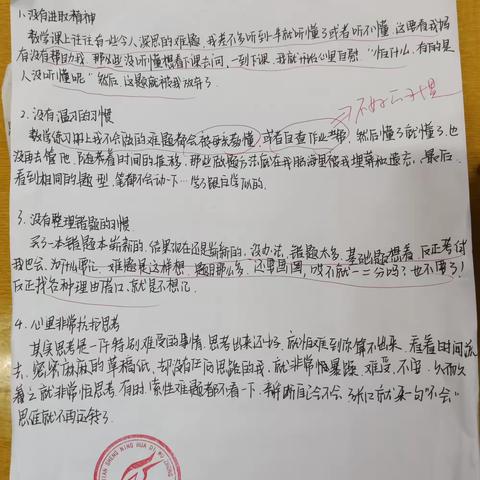 1、没有进取精神
数学课上往往有一些令人深思的难题，我差不多听到一半就听懂了或者听不懂，这要看我妈
有没有帮助我。那些没听懂想着下课去问，一到下课，我就开始心里自慰，“怕什么，有的是
人没听懂呢”然后，这题就被我放弃了。
不好的习惯
2、没有温习的习惯
数学练习册上我不会做的难题都会被母亲教懂，或者自查作业帮，然后懂了就懂了，也
没再去管他。随着看时间的推移，那些做题方法就在我脑海里很被埋葬被遗忘，最后，
看到相同的题型，笔都不会动一下…学了跟白学似的。
3、没有整理错题的习惯
买了一本错题本崭新的，结果现在还是崭新的，没办法，错题太多，基础题想着，反正考试
我也会，为什么要记，难题是这样想，题目那么多，还要画图，
反正找各种理由借口，就是不想记。
4、心里非常抗拒思考
其实思考是一件特别难受的事情，思考出来还好，就怕难到你算不出来，看着时间流
去，密密麻麻的草稿纸，却没任何思路的我，就非常怕暴躁，难受，不写，久而久
着之就非常怕思考，有时，索性难题都不看一下，判断自己会不会，张口就来一句“不会”
思维就不再运转了。